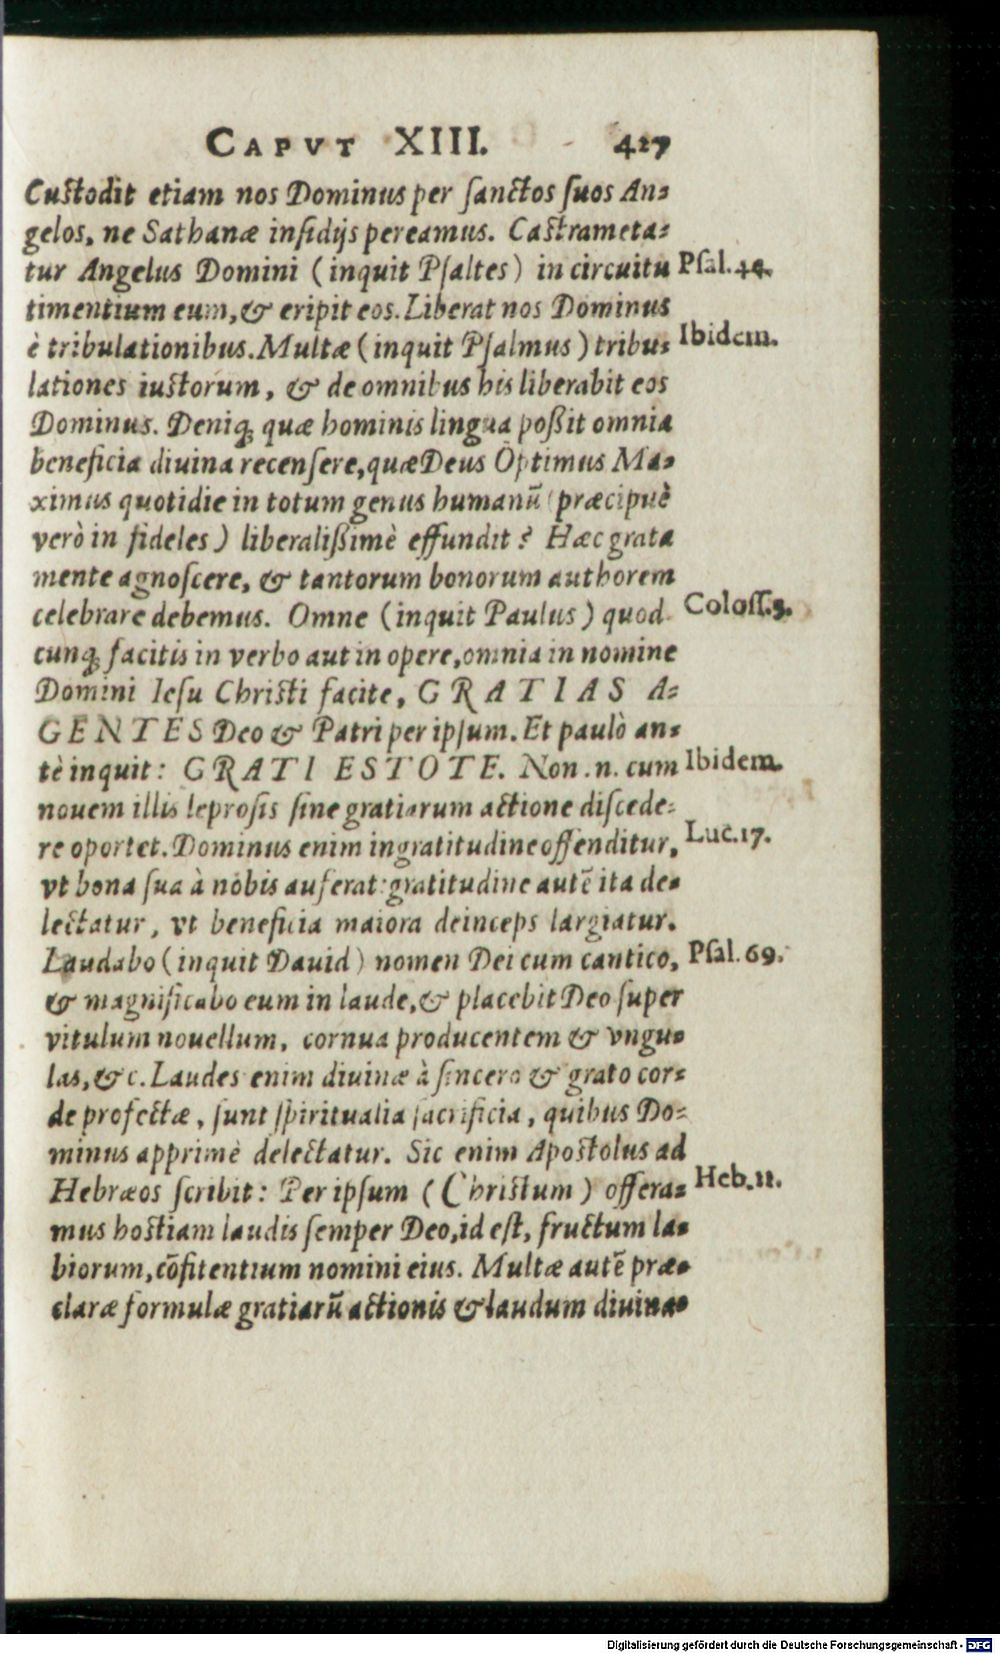 CAPVT XIII. 427
Cuſtodit etiam nos Dominus per ſanctos ſuos An-
gelos, ne Sathanæ inſidijs pereamus. Caſtrameta-
tur Angelus Domini (inquit Pſaltes) in circuitu
Pſal.
timentium eum, & eripit eos. Liberat nos Dominus
è tribulationibus. Multæ (inquit Pſalmus) tribu-
Ibidem.
lationes iuſtorum, & de omnibus his liberabit eos
Dominus. Deniq; quæ hominis lingua poßit omnia
beneficia diuina recenſere, quæ Deus Optimus Ma-
ximus quotidie in totum genus humanū (præcipuè
verò in fideles) liberalißimè effundit? Hæc grata
mente agnoſcere, & tantorum bonorum authorem
celebrare debemus. Omne (inquit Paulus) quod
Coloſſ.3.
cunq; facitis in verbo aut in opere, omnia in nomine
Domini Ieſu Chriſti facite, GRATIAS A-
GENTES Deo & Patri per ipſum. Et paulò an-
tè inquit: GRATI ESTOTE. Non .n. cum
Ibidem.
nouem illis leproſis ſine gratiarum actione diſcede-
re oportet. Dominus enim ingratitudine offenditur,
Luc.17.
vt bona ſua à nobis auferat: gratitudine autē ita de-
lectatur, vt beneficia maiora deinceps largiatur.
Laudabo (inquit Dauid) nomen Dei cum cantico,
Pſal.69.
& magnificabo eum in laude, & placebit Deo ſuper
vitulum nouellum, cornua producentem & vngu-
las, &c. Laudes enim diuinæ à ſincero & grato cor-
de profectæ, ſunt ſpiritualia ſacrificia, quibus Do-
minus apprimè delectatur. Sic enim Apoſtolus ad
Hebræos ſcribit: Per ipſum (Chriſtum) offera-
Heb.11.
mus hoſtiam laudis ſemper Deo, id eſt, fructum la-
biorum, cōfitentium nomini eius. Multæ autē præ-
claræ formulæ gratiarū actionis & laudum diuina-
Digitalisierung gefördert durch die Deutsche Forschungsgemeinschaft - DFG